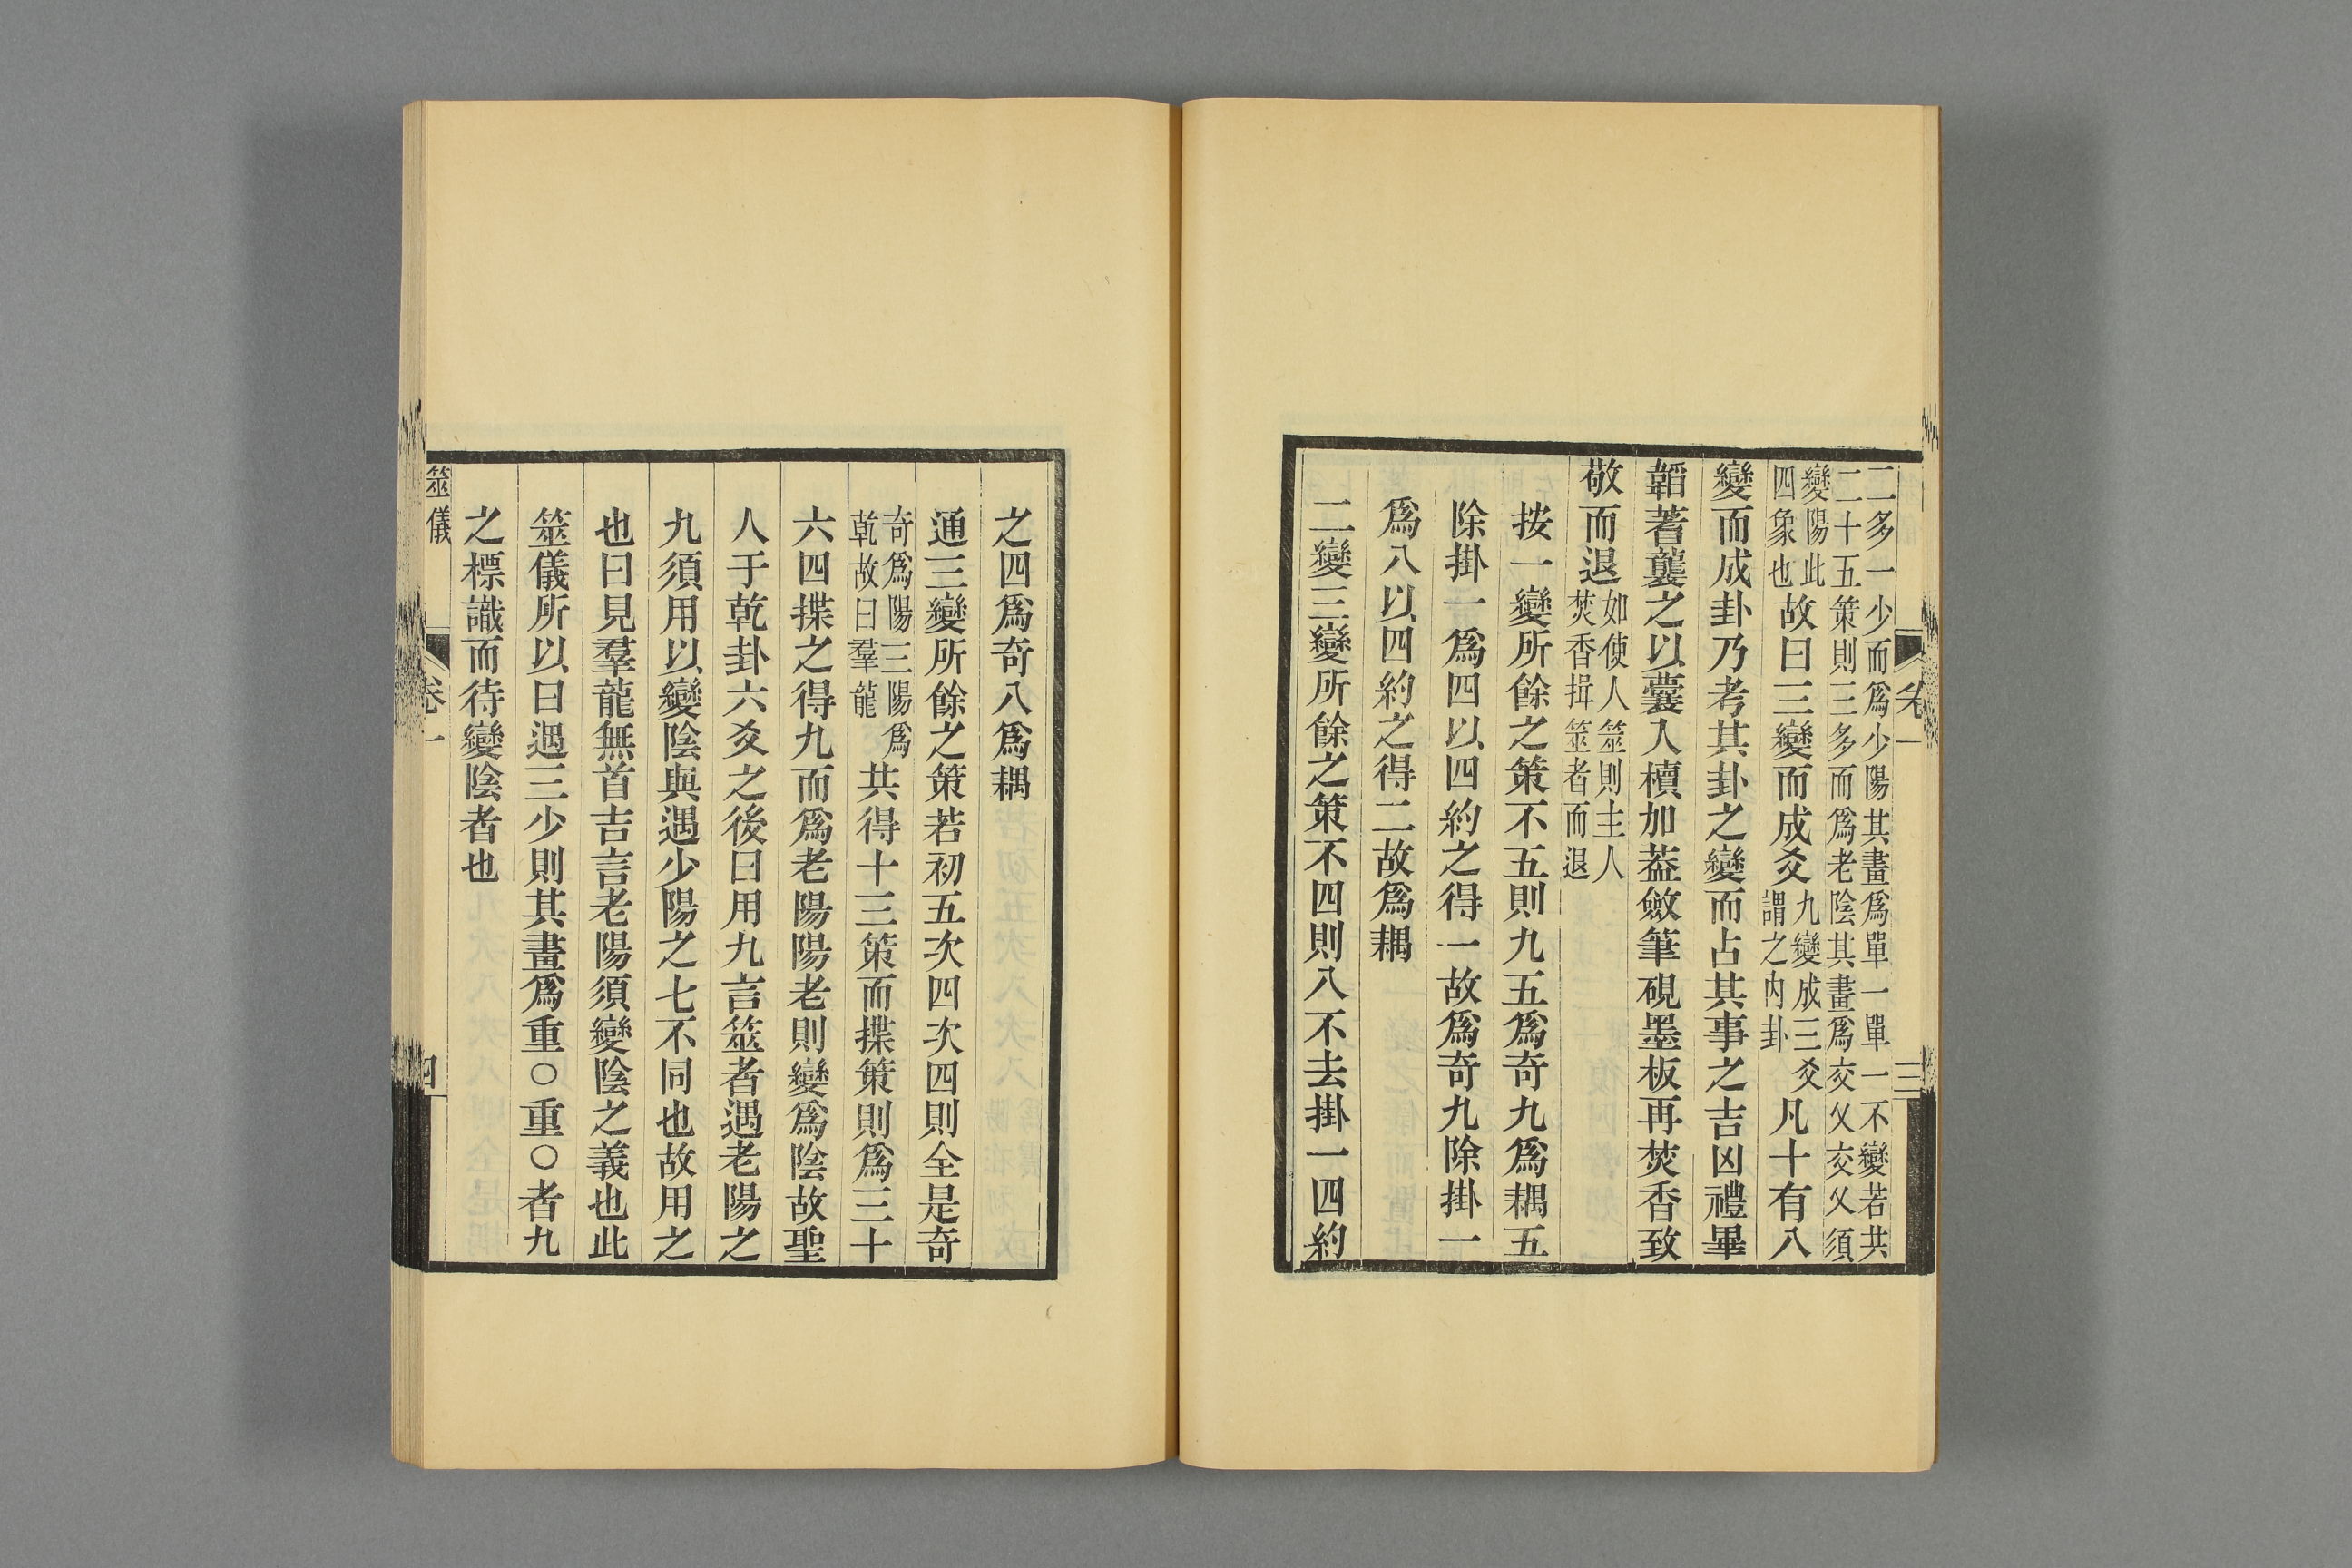 二多一少而爲少陽其畫爲單一單一不變若共
二十五策則三多而爲老陰其畫爲交乂交乂須
變陽此
四象也
故曰三變而成爻
九變成三爻
謂之内卦
凡十有八
變而成卦乃考其卦之變而占其事之吉凶禮畢
韜蓍襲之以囊入櫝加葢斂筆硯墨板再焚香致
敬而退
如使人筮則主人
焚香揖筮者而退
按一變所餘之策不五則九五爲奇九爲耦五
除掛一爲四以四約之得一故爲奇九除掛一
爲八以四約之得二故爲耦
二變三變所餘之策不四則八不去掛一四約
卷一
三
之四爲奇八爲耦
通三變所餘之策若初五次四次四則全是奇
奇爲陽三陽爲
乾故曰羣龍
共得十三策而揲策則爲三十
六四揲之得九而爲老陽陽老則變爲陰故聖
人于乾卦六爻之後曰用九言筮者遇老陽之
九須用以變陰與遇少陽之七不同也故用之
也曰見羣龍無首吉言老陽須變陰之義也此
筮儀所以曰遇三少則其畫爲重○重○者九
之標識而待變陰者也
筮儀
卷一
四